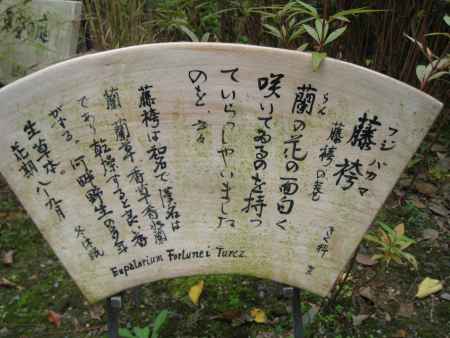 フジバカマ
藤袴 きく科
らん 藤袴の花
蘭の花の面白く
咲いてゐるのを持つ
ていらつしやいました
のを、云々
藤袴は和名で漢名は
蘭 蘭草 香草 香蘭
であり、乾燥すると良い香
がする。河畔野生の多年
生草本。
花期 八、九月
Eupatorium Fortunei Turcz